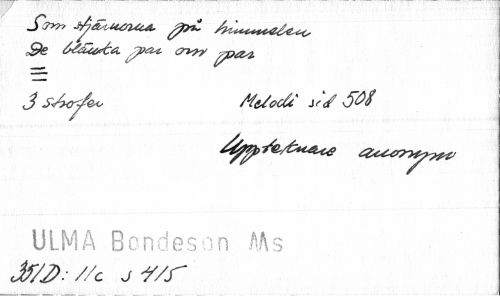 Som stjärnorna på himmelen
De blänka par om par
3 strofer Melodi sid 508
Upptecknare anonym
ULMA Bondeson Ms
351D: 11c s 415